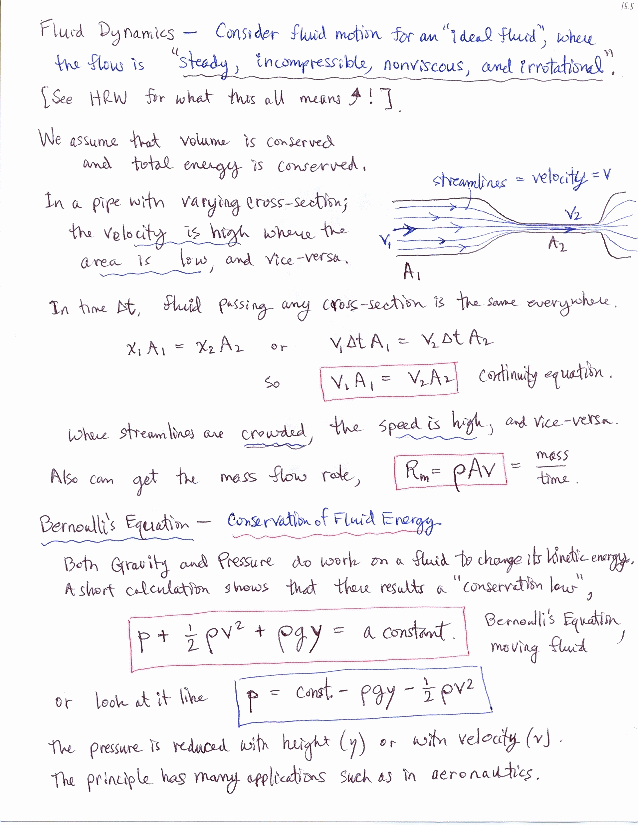 15.5
Fluid Dynamics — Consider fluid motion for an "ideal fluid", where
the flow is "steady, incompressible, nonviscous, and irrotational".
[See HRW for what this all means ↑!].
We assume that volume is conserved
and total energy is conserved.
streamlines = velocity = v
In a pipe with varying cross-section;
the velocity is high where the
area is low, and vice-versa.
V₁
V₂
A₂
A₁
In time Δt, fluid passing any cross-section is the same everywhere.
x₁A₁ = x₂A₂ or V₁Δt A₁ = V₂Δt A₂
so V₁A₁ = V₂A₂ continuity equation.
Where streamlines are crowded, the speed is high, and vice-versa.
Also can get the mass flow rate, Rₘ = ρAv = mass/time.
Bernoulli's Equation — Conservation of Fluid Energy
Both Gravity and Pressure do work on a fluid to change its kinetic energy.
A short calculation shows that there results a "conservation law",
p + ½ρv² + ρgy = a constant. Bernoulli's Equation,
moving fluid
or look at it like p = const. − ρgy − ½ρv²
The pressure is reduced with height (y) or with velocity (v).
The principle has many applications such as in aeronautics.